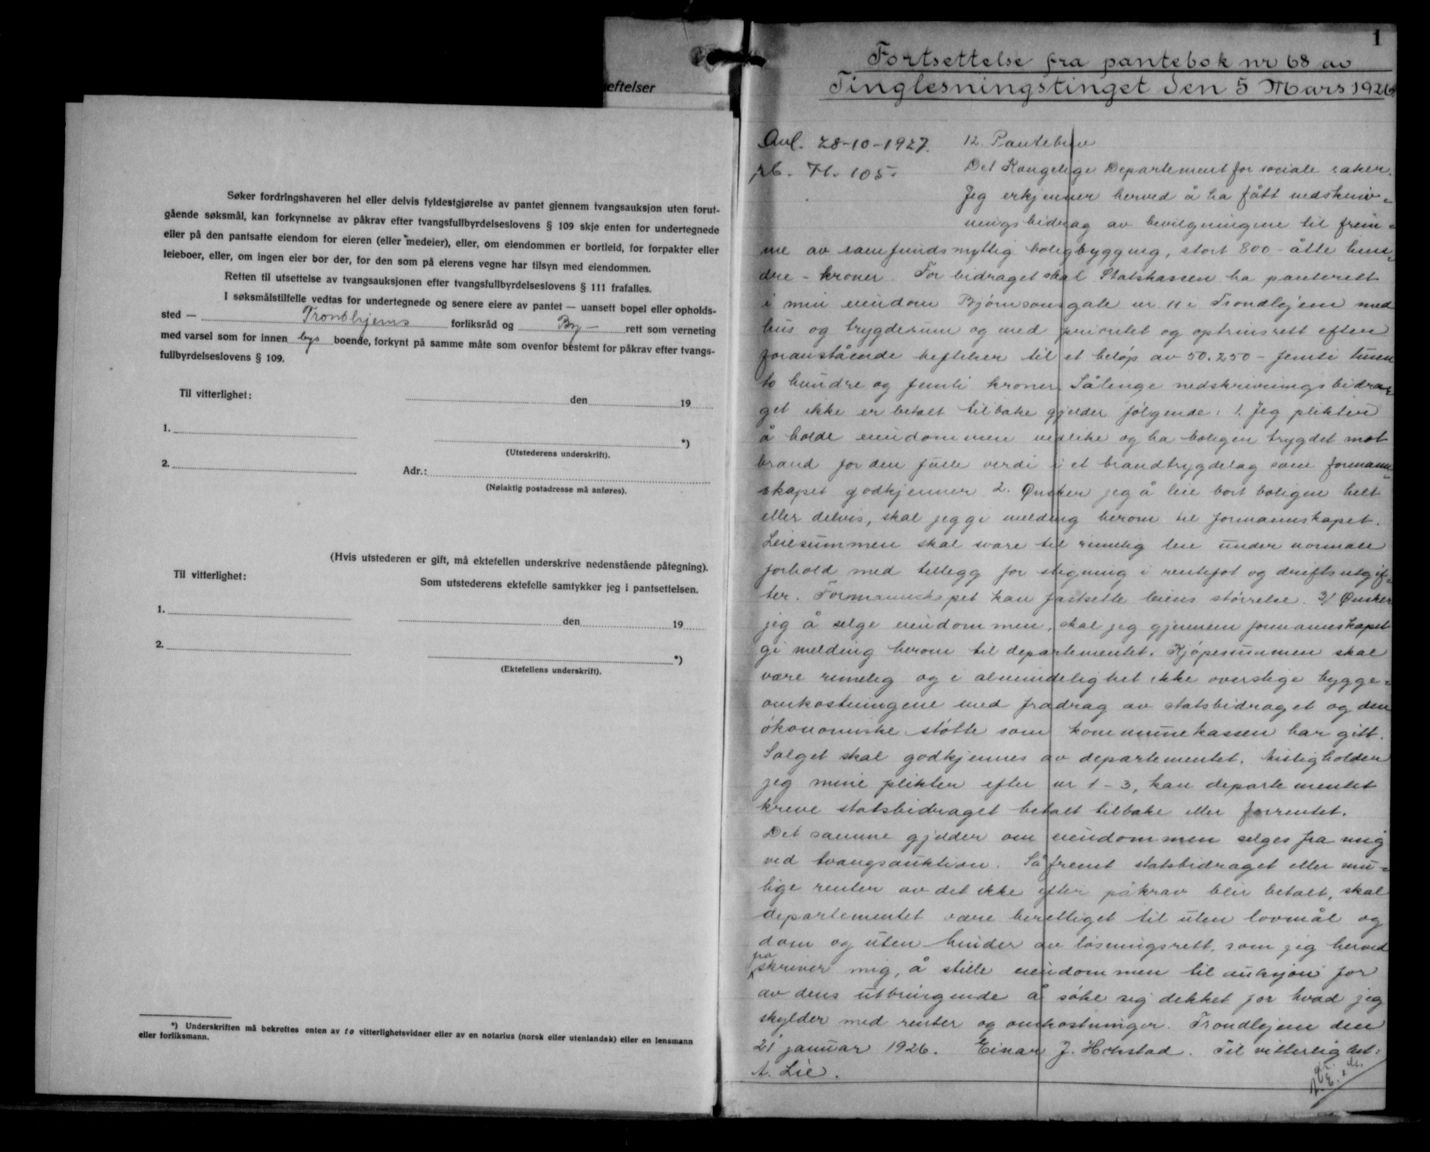 eftelser
Søker fordringshaveren hel eller delvis fyldestgjørelse av pantet gjennem tvangsauksjon uten forut-
gående søksmål, kan forkynnelse av påkrav efter tvangsfullbyrdelseslovens § 109 skje enten for undertegnede
eller på den pantsatte eiendom for eieren (eller medeier), eller, om eiendommen er bortleid, for forpakter eller
leieboer, eller, om ingen eier bor der, for den som på eierens vegne har tilsyn med eiendommen.
Retten til utsettelse av tvangsauksjonen efter tvangsfullbyrdelseslovens § 111 frafalles.
I søksmålstilfelle vedtas for undertegnede og senere eiere av pantet — uansett bopel eller opholds-
sted — Trondhjems forliksråd og By- rett som verneting
med varsel som for innen bys boende, forkynt på samme måte som ovenfor bestemt for påkrav efter tvangs-
fullbyrdelseslovens § 109.
Til vitterlighet:
den 19
1. *)
(Utstederens underskrift).
2. Adr.:
(Nøiaktig postadresse må anføres).
(Hvis utstederen er gift, må ektefellen underskrive nedenstående påtegning).
Til vitterlighet: Som utstederens ektefelle samtykker jeg i pantsettelsen.
1. den 19
2. *)
(Ektefellens underskrift).
*) Underskriften må bekreftes enten av to vitterlighetsvidner eller av en notarius (norsk eller utenlandsk) eller en lensmann
eller forliksmann.
1
Fortsettelse fra pantebok nr 68 av
Tinglesningstinget den 5 Mars 1926
Avl. 28-10-1927. 12. Pantebrev
Det Kongelige Departement for sociale saker.
H. 105.
Jeg erkjenner herved å ha fått nedskriv-
ningsbidrag av bevilgningene til frem-
me av samfundsnyttig boligbygging, stort 800 - åtte hun-
dre - kroner. For bidraget skal Statskassen ha panterett
i min eiendom Bjørnsonsgate nr 11 i Trondhjem med
hus og bygderum og med prioritet og optrinsrett efter
foranstående heftelser til et beløp av 50.250 - femti tusen
to hundre og femti kroner. Sålenge nedskrivningsbidra-
get ikke er betalt tilbake gjelder følgende: 1. Jeg plikter
å holde eiendommen vedlike og ha boligen trygdet mot
brand for den fulle verdi i et brandtrygdelag som formann-
skapet godkjenner. 2. Ønsker jeg å leie bort boligen helt
eller delvis, skal jeg gi melding herom til formannskapet.
Leiesummen skal svare til rimelig leie under normale
forhold med tillegg for stigning i rentefot og driftsutgif-
ter. Formannskapet kan fastsette leiens størrelse. 3/ Ønsker
jeg å selge eiendommen, skal jeg gjennem formannskapet
gi melding herom til departementet. Kjøpesummen skal
være rimelig og i almindelighet ikke overstige bygge-
omkostningene med fradrag av statsbidraget og den
økonomiske støtte som kommunekassen har gitt.
Salget skal godkjennes av departementet. Misligholder
jeg mine plikter efter nr 1-3, kan departementet
kreve statsbidraget betalt tilbake eller forrentet.
Det samme gjelder om eiendommen selges fra mig
ved tvangsauktion. Såfremt statsbidraget eller mu-
lige renter av det ikke efter påkrav blir betalt, skal
departementet være berettiget til uten lovmål og
dom og uten hinder av løsningsrett, som jeg herved
fraskriver mig, å stille eiendommen til auksjon for
av dens utbringende å søke sig dekket for hvad jeg
skylder med renter og omkostninger. Trondhjem den
21 januar 1926. Einar J. Hofstad. Til vitterlighet:
A. Lie.